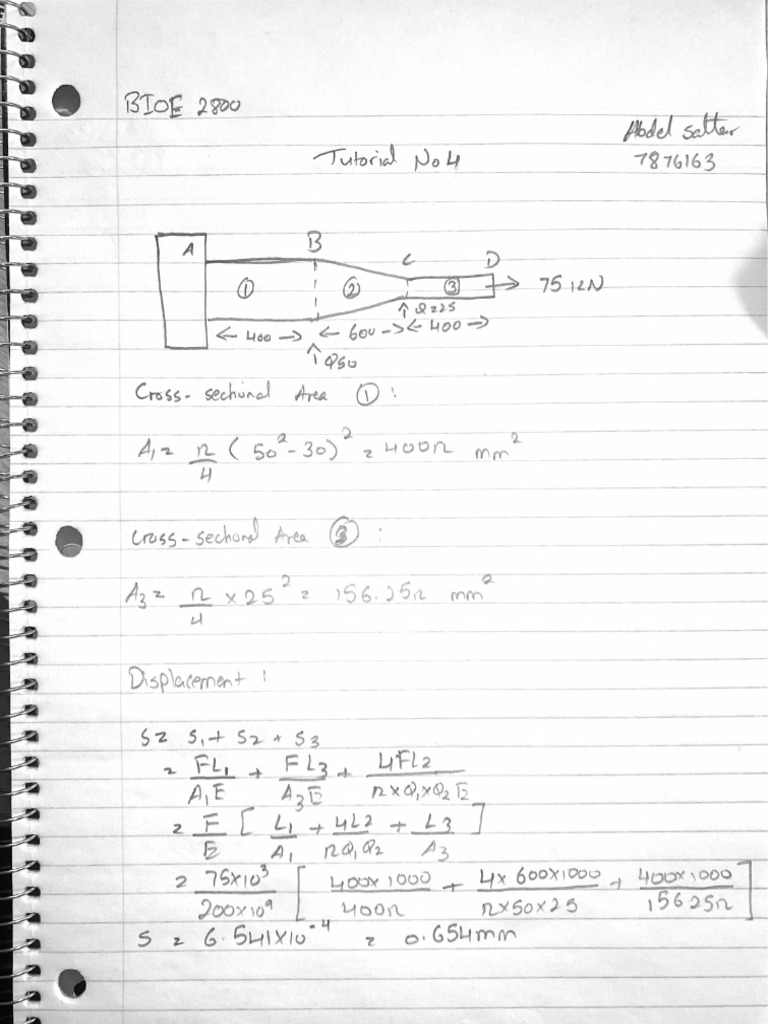 BIOE 2800
Abdel Satter
Tutorial No 4
7876163
A B C D
① ② ③ 75 kN
Ø=25
← 400 → ← 600 → ← 400 →
↑ Ø50
Cross-sectional Area ① :
A₁ = π/4 (50² - 30)² = 400π mm²
Cross-sectional Area ③ :
A₃ = π/4 × 25² = 156.25π mm²
Displacement :
S = S₁ + S₂ + S₃
= FL₁/A₁E + FL₃/A₃E + 4FL2/π×Ø₁×Ø₂E
= F/E [ L₁/A₁ + 4L2/πØ₁Ø₂ + L₃/A₃ ]
= 75×10³/200×10⁹ [ 400×1000/400π + 4×600×1000/π×50×25 + 400×1000/156.25π ]
S = 6.541×10⁻⁴ = 0.654mm